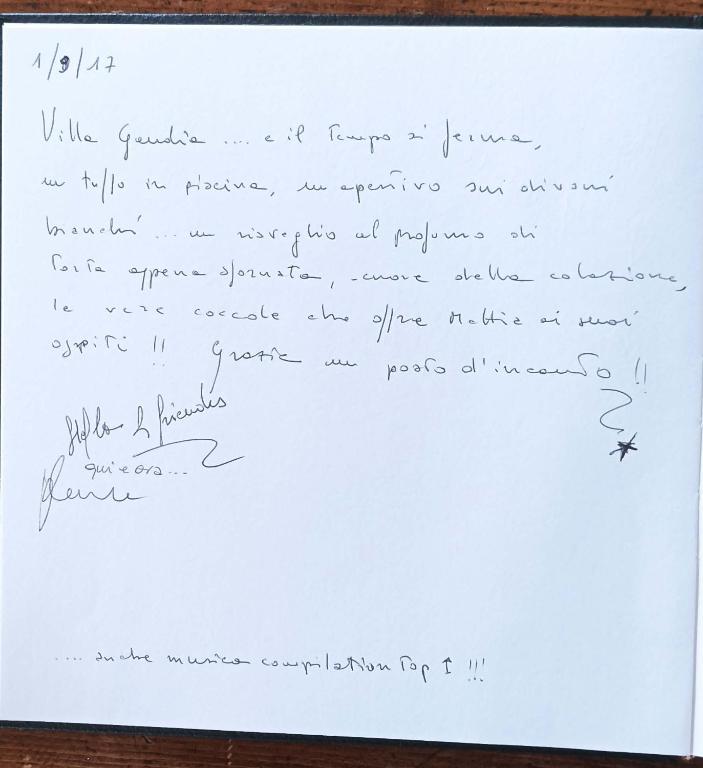 1/9/17
Villa Gaudia .... e il Tempo si ferma,
un tuffo in piscina, un aperitivo sui divani
bianchi ... un risveglio al profumo di
Torta appena sfornata, cuore della colazione,
le vere coccole che offre Mattia ai suoi
ospiti !! Grazie un posto d'incanto !!
& friends
qui e ora...
.... anche musica compilation Top !!!